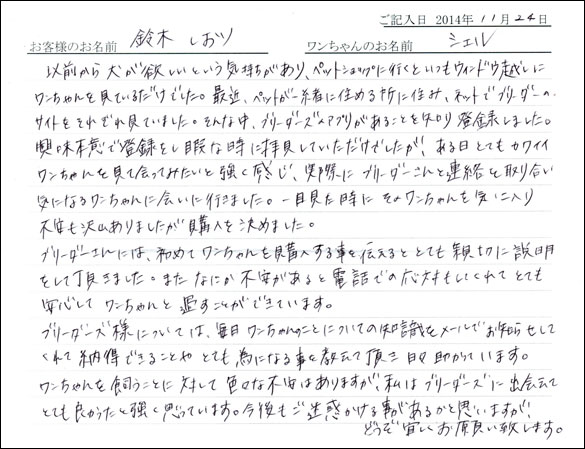 ご記入日 2014年11月24日
お客様のお名前 鈴木 しおり ワンちゃんのお名前 シェル
以前から犬が欲しいという気持ちがあり、ペットショップに行くといつもウィンドウ越しに
ワンちゃんを見ているだけでした。最近、ペットが一緒に住める所に住み、ネットでブリーダーの
サイトをそれぞれ見ていました。そんな中、ブリーダーズのアプリがあることを知り登録しました。
興味本意で登録をし暇な時に拝見していただけでしたが、ある日とてもカワイイ
ワンちゃんを見て会ってみたいと強く感じ、実際にブリーダーさんと連絡を取り合い
気になるワンちゃんに会いに行きました。一目見た時にそのワンちゃんを気に入り
不安も沢山ありましたが購入を決めました。
ブリーダーさんには、初めてワンちゃんを購入する事を伝えるととても親切に説明
をして頂きました。またなにか不安があると電話での応対もしてくれてとても
安心してワンちゃんと過すことができています。
ブリーダーズ様については、毎日ワンちゃんのことについての知識をメールでお知らせして
くれて納得できることやとても為になる事を教えて頂き日々助かっています。
ワンちゃんを飼うことに対して色々な不安はありますが、私はブリーダーズに出会えて
とても良かったと強く思っています。今後もご迷惑かける事があるかと思いますが、
どうぞ宜しくお願い致します。